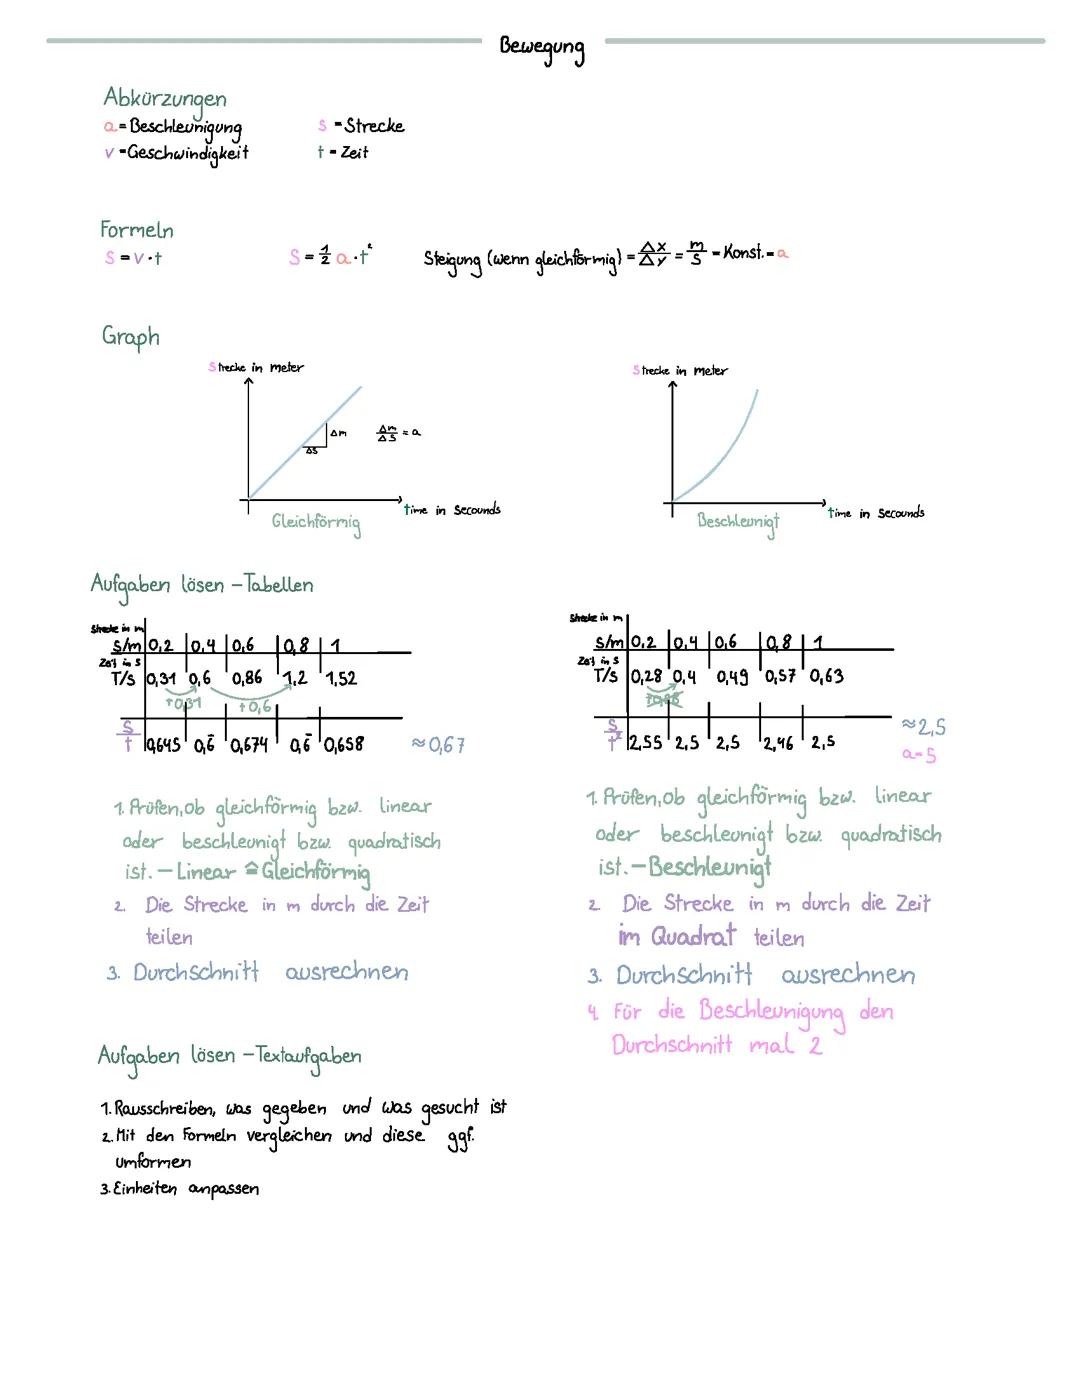 Bewegung
Abkürzungen
a = Beschleunigung
s = Strecke
v = Geschwindigkeit
t = Zeit
Formeln
s = v · t
s = 1/2 a · t²
Steigung (wenn gleichförmig) = Δx/Δy = m/s = Konst. = a
Graph
Strecke in meter
Δm
Δs
Δm/Δs = a
time in secounds
Gleichförmig
Strecke in meter
time in secounds
Beschleunigt
Aufgaben lösen – Tabellen
Strecke in m
s/m 0,2 0,4 0,6 0,8 1
Zeit in s
T/s 0,31 0,6 0,86 1,2 1,52
+0,31 +0,6
s/t 0,645 0,6̄ 0,674 0,6̄ 0,658 ≈ 0,67
1. Prüfen, ob gleichförmig bzw. linear
oder beschleunigt bzw. quadratisch
ist. – Linear ≙ Gleichförmig
2. Die Strecke in m durch die Zeit
teilen
3. Durchschnitt ausrechnen
Strecke in m
s/m 0,2 0,4 0,6 0,8 1
Zeit in s
T/s 0,28 0,4 0,49 0,57 0,63
s/t² 2,55 2,5 2,5 2,46 2,5 ≈ 2,5
a = 5
1. Prüfen, ob gleichförmig bzw. linear
oder beschleunigt bzw. quadratisch
ist. – Beschleunigt
2 Die Strecke in m durch die Zeit
im Quadrat teilen
3. Durchschnitt ausrechnen
4. Für die Beschleunigung den
Durchschnitt mal 2
Aufgaben lösen – Textaufgaben
1. Rausschreiben, was gegeben und was gesucht ist
2. Mit den Formeln vergleichen und diese ggf.
umformen
3. Einheiten anpassen